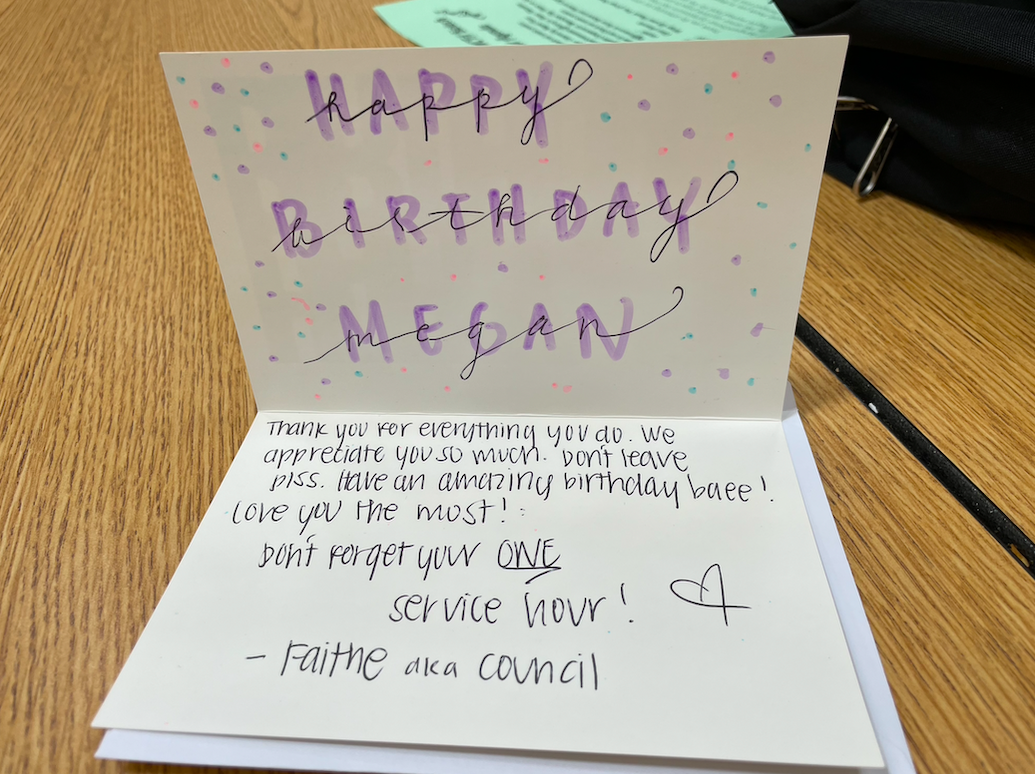 HAPPY
happy
BIRTHDAY
birthday
MEGAN
megan
Thank you for everything you do. We
appreciate you so much. Don't leave
plss. Have an amazing birthday baee!
Love you the most!
Don't forget your ONE
service hour!
- Faithe aka council